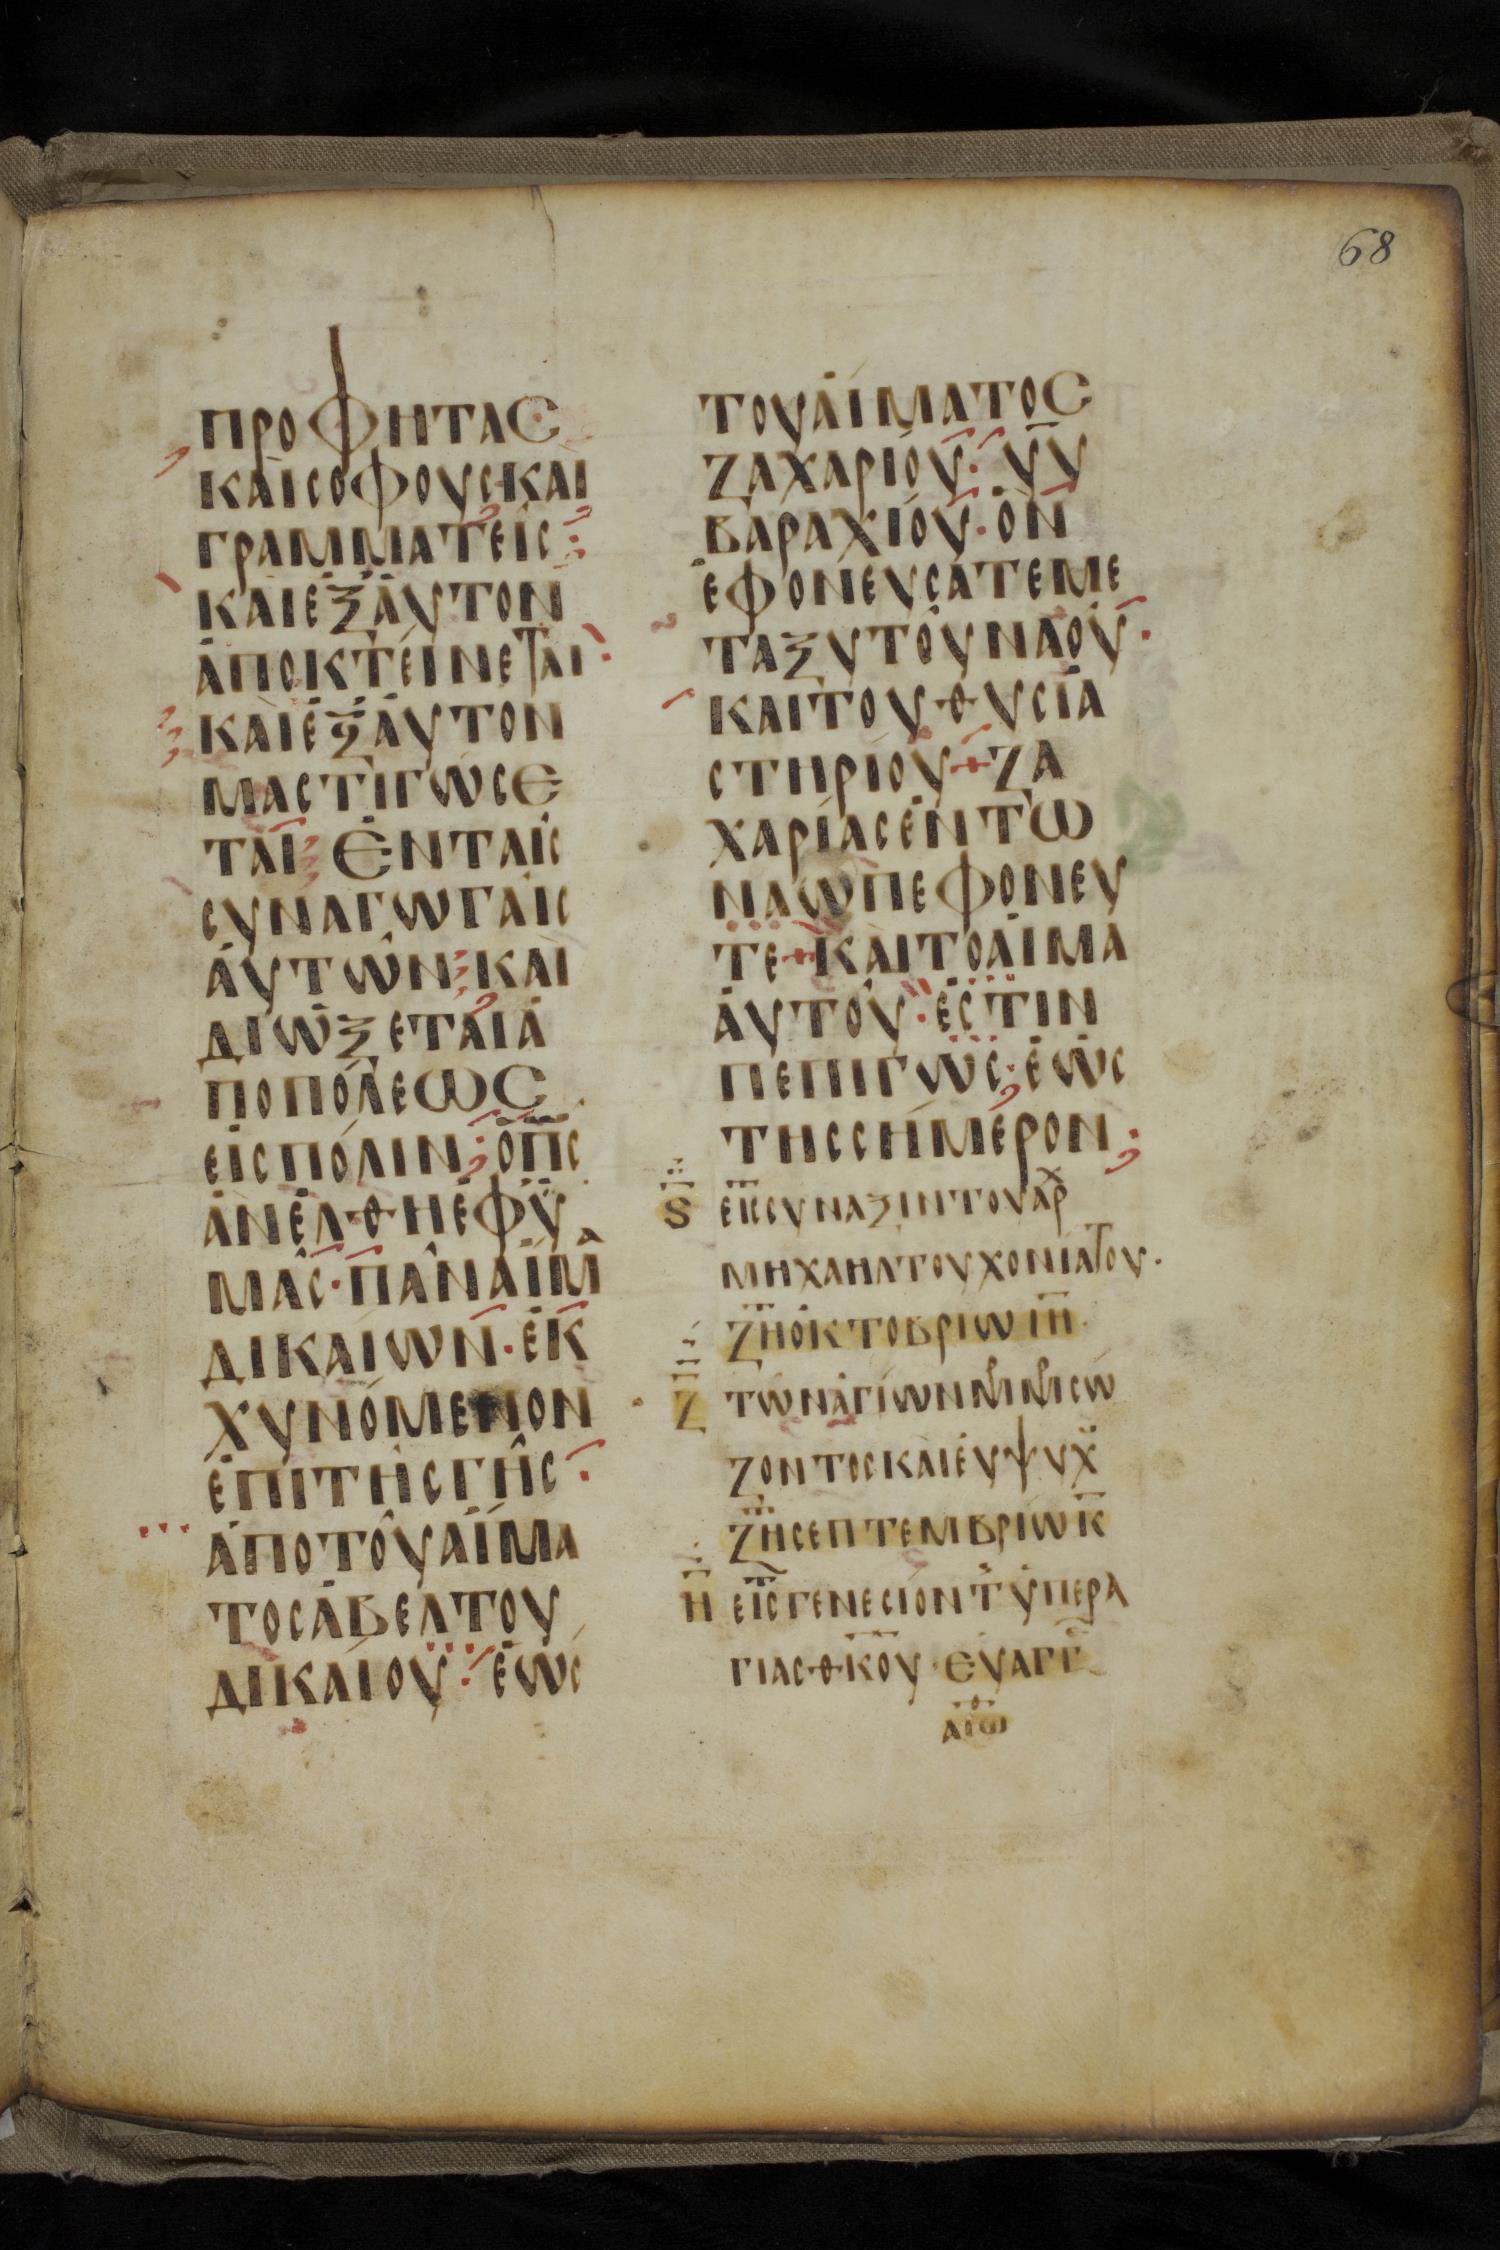 68
ΠΡΟΦΗΤΑϹ
ΚΑΙϹΟΦΟΥϹ·ΚΑΙ
ΓΡΑΜΜΑΤΕΙϹ:
ΚΑΙΕΞΑΥΤΟΝ
ΑΠΟΚΤΕΙΝΕΤΑΙ·
ΚΑΙΕΞΑΥΤΟΝ
ΜΑϹΤΙΓΩϹΕ
ΤΑΙ ΕΝΤΑΙϹ
ϹΥΝΑΓΩΓΑΙϹ
ΑΥΤΩΝ ΚΑΙ
ΔΙΩΞΕΤΑΙΑ
ΠΟΠΟΛΕΩϹ
ΕΙϹΠΟΛΙΝ· ΟΠϹ
ΑΝΕΛΘΗΕΦΥ
ΜΑϹ·ΠΑΝΑΙΜΑ
ΔΙΚΑΙΩΝ·ΕΚ
ΧΥΝΟΜΕΝΟΝ
ΕΠΙΤΗϹΓΗϹ·
ΑΠΟΤΟΥΑΙΜΑ
ΤΟϹΑΒΕΛΤΟΥ
ΔΙΚΑΙΟΥ· ΕΩϹ
ΤΟΥΑΙΜΑΤΟϹ
ΖΑΧΑΡΙΟΥ· ΥΥ
ΒΑΡΑΧΙΟΥ·ΟΝ
ΕΦΟΝΕΥϹΑΤΕΜΕ
ΤΑΞΥΤΟΥΝΑΟΥ·
ΚΑΙΤΟΥΘΥϹΙΑ
ϹΤΗΡΙΟΥ+ΖΑ
ΧΑΡΙΑϹΕΝΤΩ
ΝΑΩΠΕΦΟΝΕΥ
ΤΕ+ΚΑΙΤΟΑΙΜΑ
ΑΥΤΟΥ·ΕϹΤΙΝ
ΠΕΠΙΓΩϹ·ΕΩϹ
ΤΗϹϹΗΜΕΡΟΝ;
Ϛ ΕΙϹϹΥΝΑΞΙΝΤΟΥΑΡΧ
ΜΗΧΑΗΛΤΟΥΧΟΝΙΑΤΟΥ·
ΖΗΟΚΤΟΒΡΙΩ ΙΗ
Ζ ΤΩΝΑΓΙΩΝΜΜΜΜϹΩ
ΖΟΝΤΟϹΚΑΙΕΥΨΥΧ
ΖΗϹΕΠΤΕΜΒΡΙΩ Κ
Η ΕΙϹΓΕΝΕϹΙΟΝΤ ΥΠΕΡΑ
ΓΙΑϹΘΚΟΥ ΕΥΑΓΓ